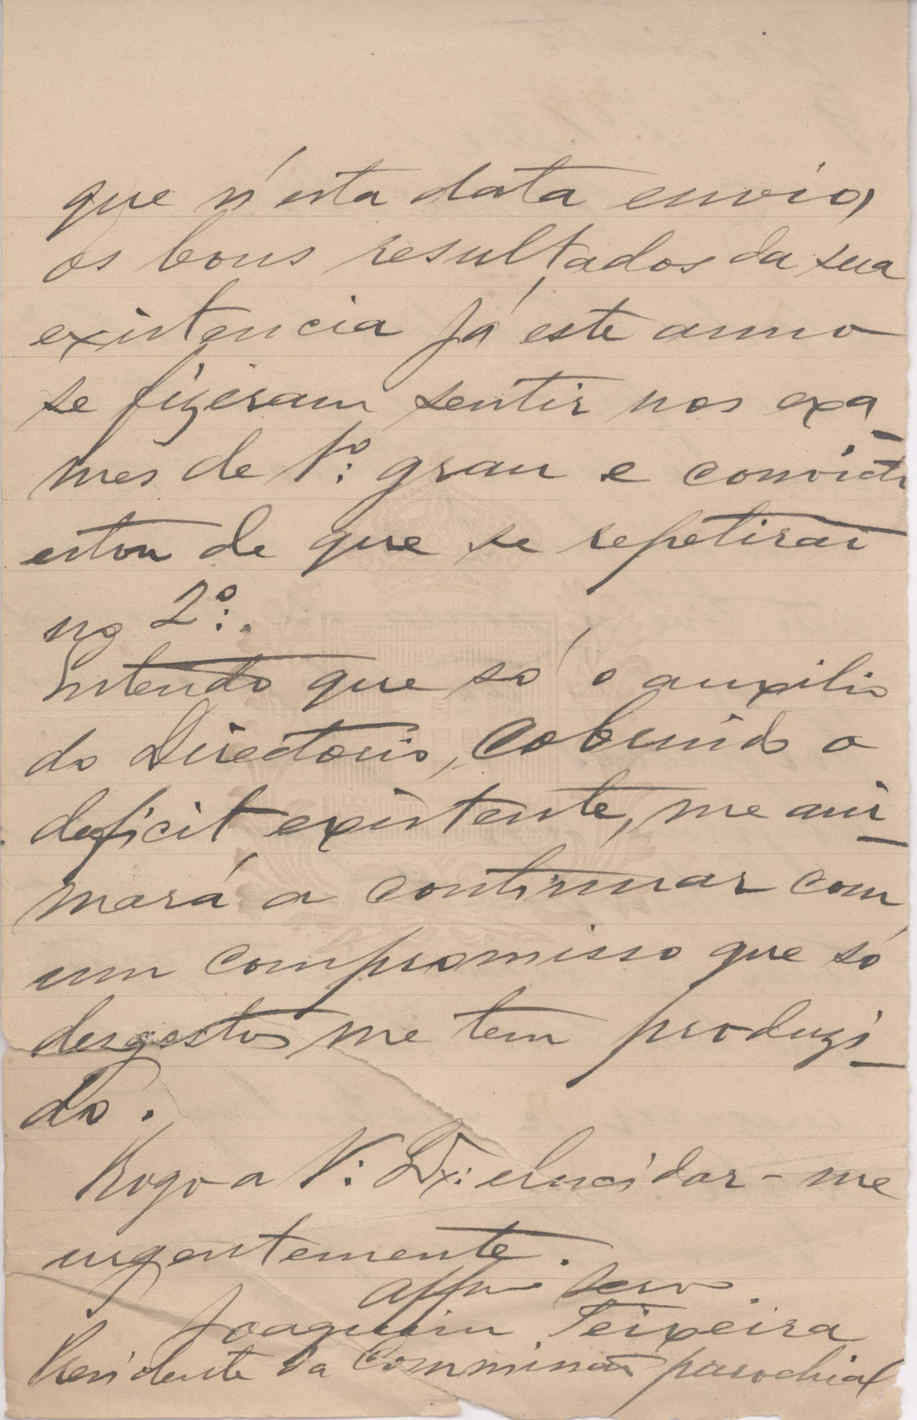 que n'esta data envio,
os bons resultados da sua
existencia já este anno
se fizeram sentir nos exa
mes de 1º: grau e convicto
estou de que se repetirão
no 2º:.
Entendo que só o auxilio
do Directorio, cobrindo o
deficit existente, me ani
mará a continuar com
um compromisso que só
desgostos me tem produzi
do.
Rogo a V: Ex: elucidar-me
urgentemente.
Joaquim Teixeira
Presidente da Commissão parochial